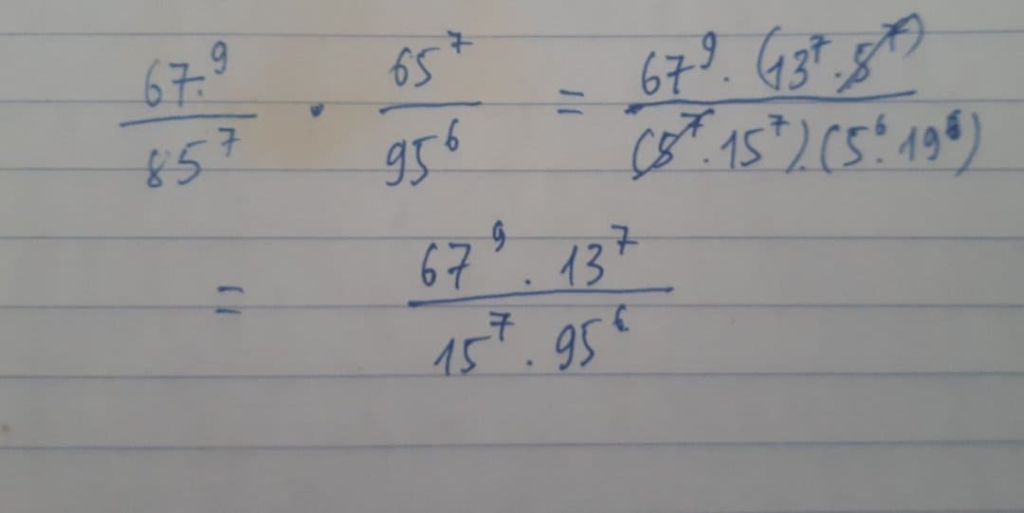 67⁹/85⁷ · 65⁷/95⁶ = 67⁹ · (13⁷ · 5⁷)/(5⁷ · 15⁷) · (5⁶ · 19⁶)
= 67⁹ · 13⁷/15⁷ · 95⁶